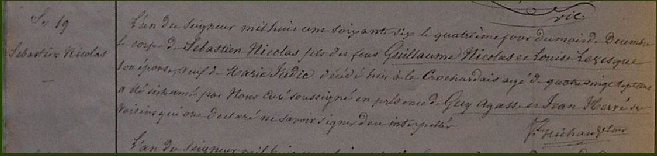 Sn 19
Sébastien Nicolas
L'an du seigneur mil huit cent soixante six le quatrième jour du mois de Décembre
le corps de Sébastien Nicolas fils des feus Guillaume Nicolas et Louise Levesque
son épouse, veuf de Marie Judic décédé hier à la Crochardais agé de quatre vingt sept ans
a été inhumé par Nous curé soussigné en présence de Guy Agasse et Jean Hervé
voisins qui ont déclaré ne savoir signer de ce interpellés
L'an du seigneur mil huit cent